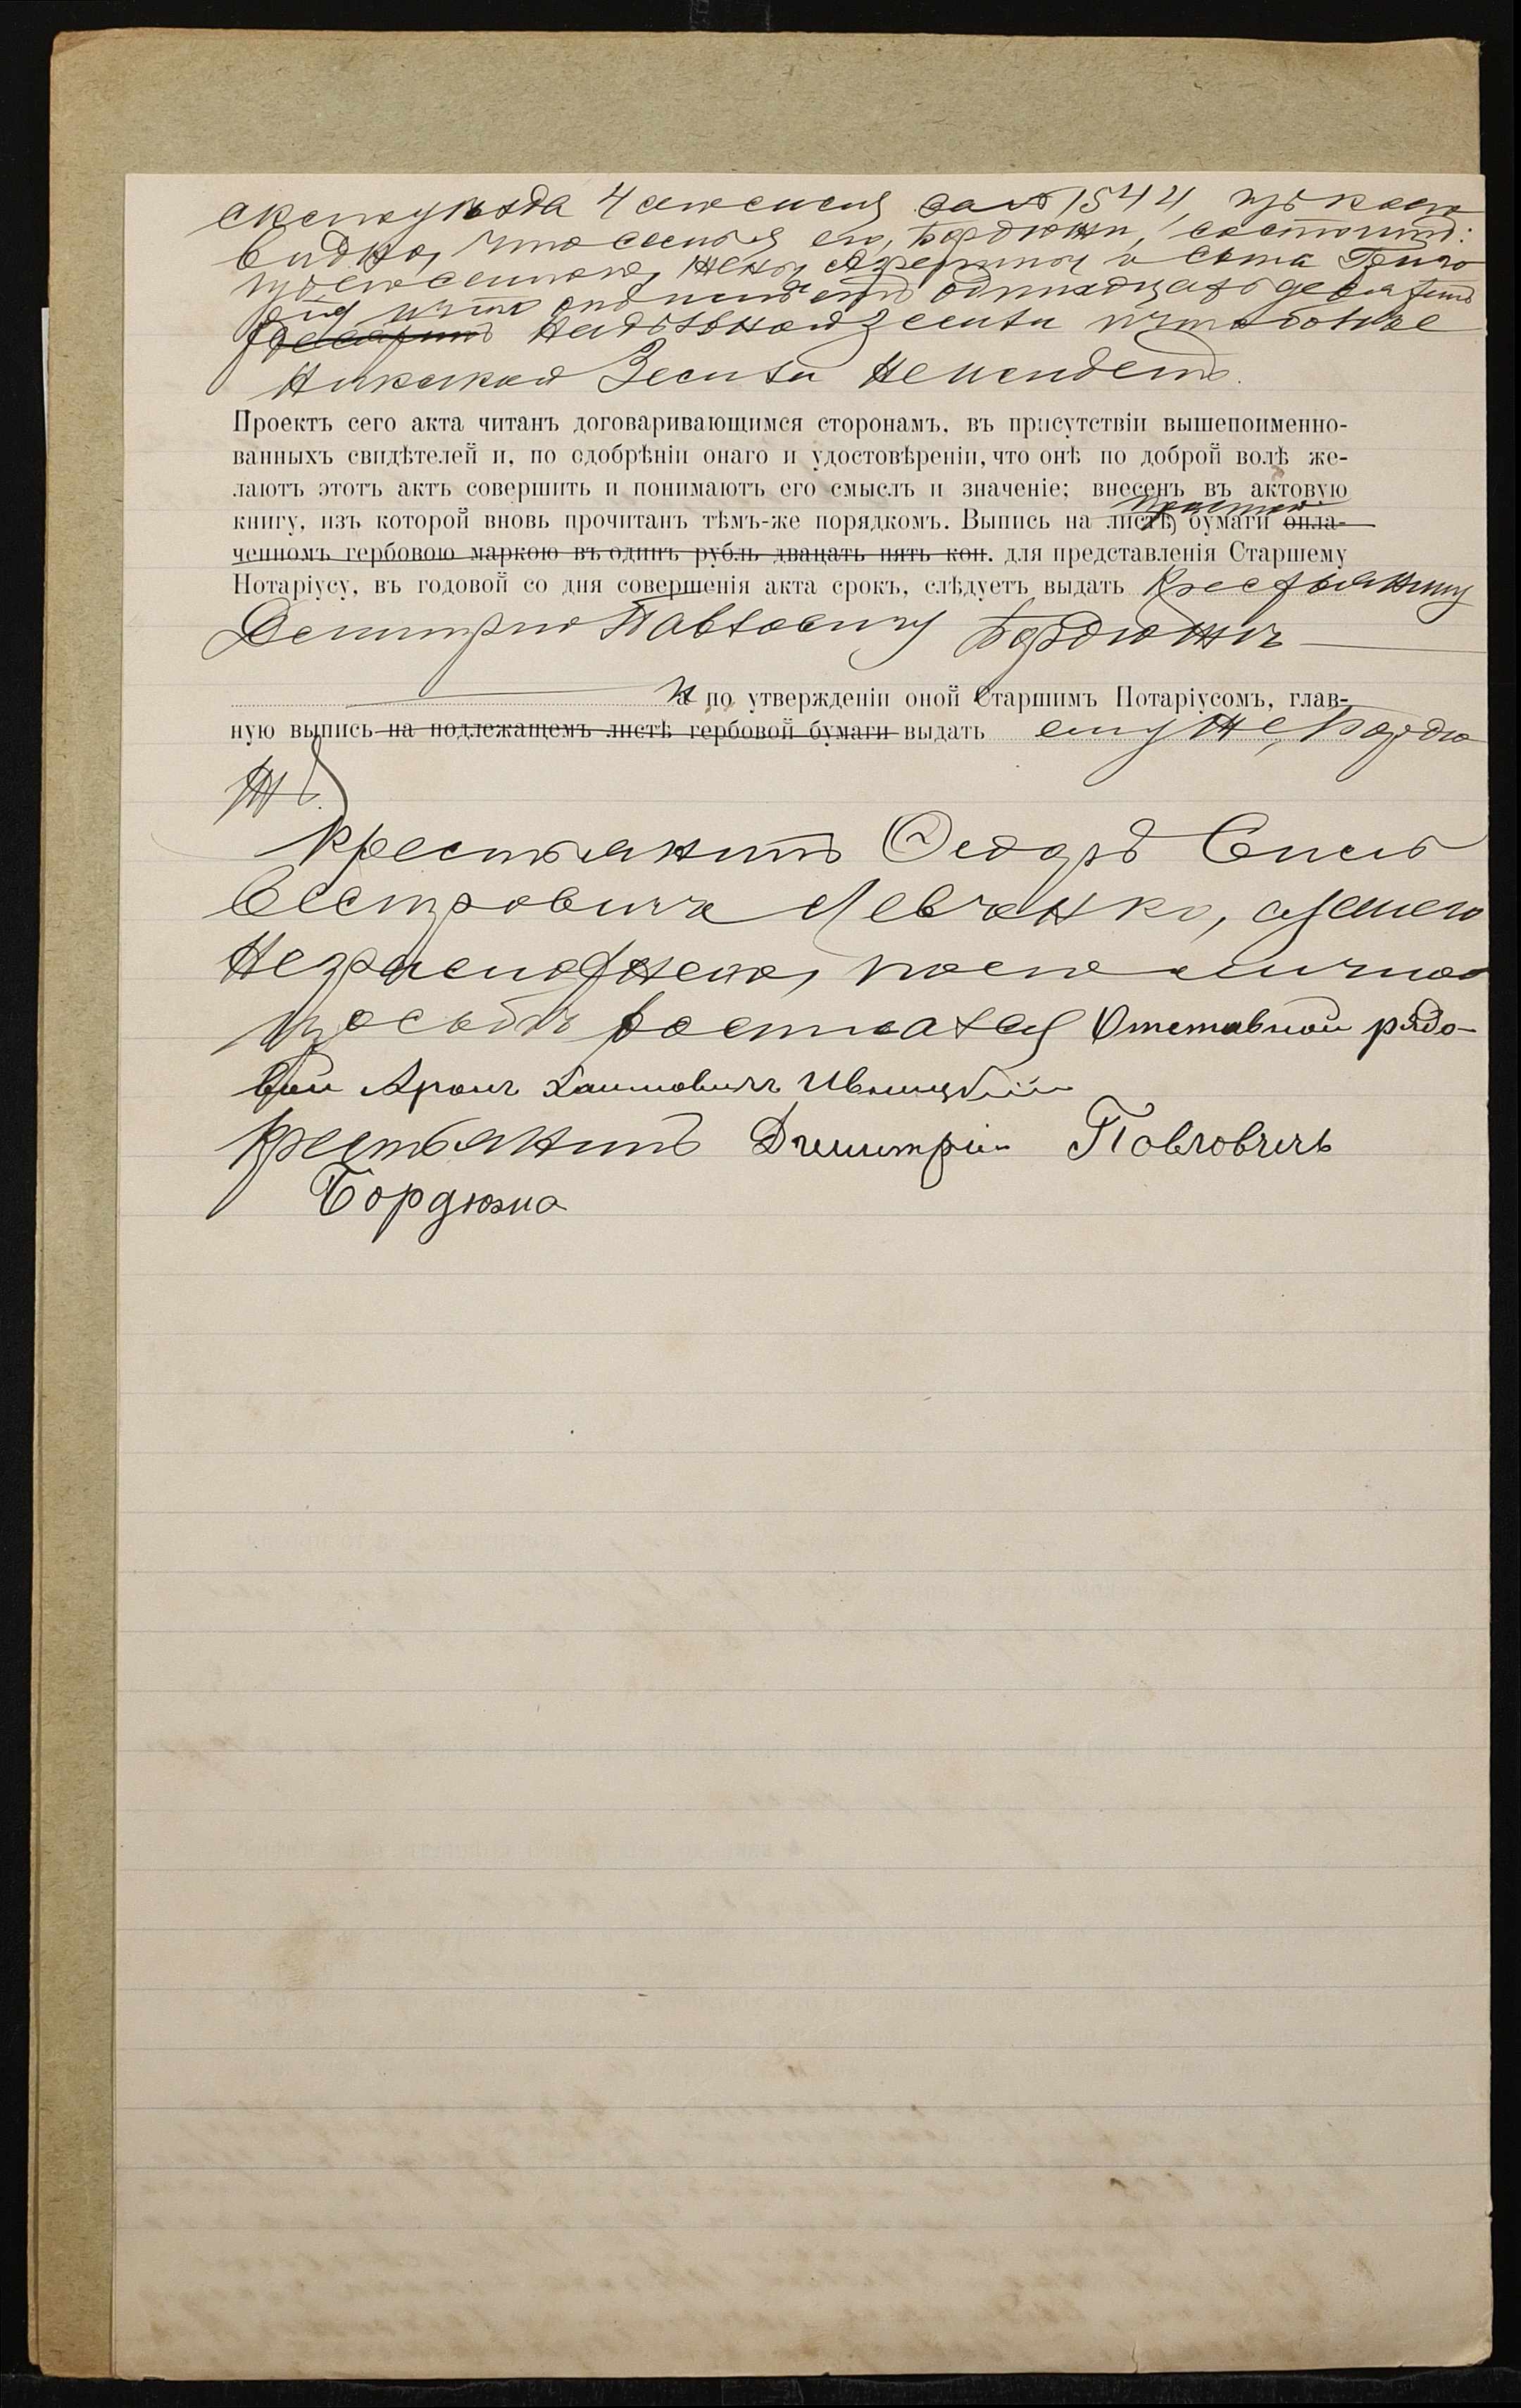 4 сего за № 1544, изъ коего
видно, что семья его, Бордюжи, состоитъ:
жены и сына
что онъ имѣетъ одиннадцать десятинъ
надѣльной земли и что болѣе
никакой земли не имѣетъ.
Проектъ сего акта читанъ договаривающимся сторонамъ, въ присутствіи вышепоименно-
ванныхъ свидѣтелей и, по одобрѣніи онаго и удостовѣреніи, что онѣ по доброй волѣ же-
лаютъ этотъ актъ совершить и понимаютъ его смыслъ и значеніе; внесенъ въ актовую
простой
книгу, изъ которой вновь прочитанъ тѣмъ-же порядкомъ. Выпись на листѣ бумаги опла-
ченномъ гербовою маркою въ одинъ рубль двацать пять коп. для представленія Старшему
Нотаріусу, въ годовой со дня совершенія акта срокъ, слѣдуетъ выдать крестьянину
Дмитрію Павловичу Бордюжѣ
а по утвержденіи оной Старшимъ Нотаріусомъ, глав-
ную выпись на подлежащемъ листѣ гербовой бумаги выдать ему же, Бордю
жѣ.
Крестьянинъ Федоръ Силь
вестровичъ Левченко, а за него
неграмотнаго, по его личной
просьбѣ росписался Отставной рядо-
вой Аронъ Хаимовичъ Ивницкій
Крестьянинъ Дмитрій Повловичъ
Бордюжа